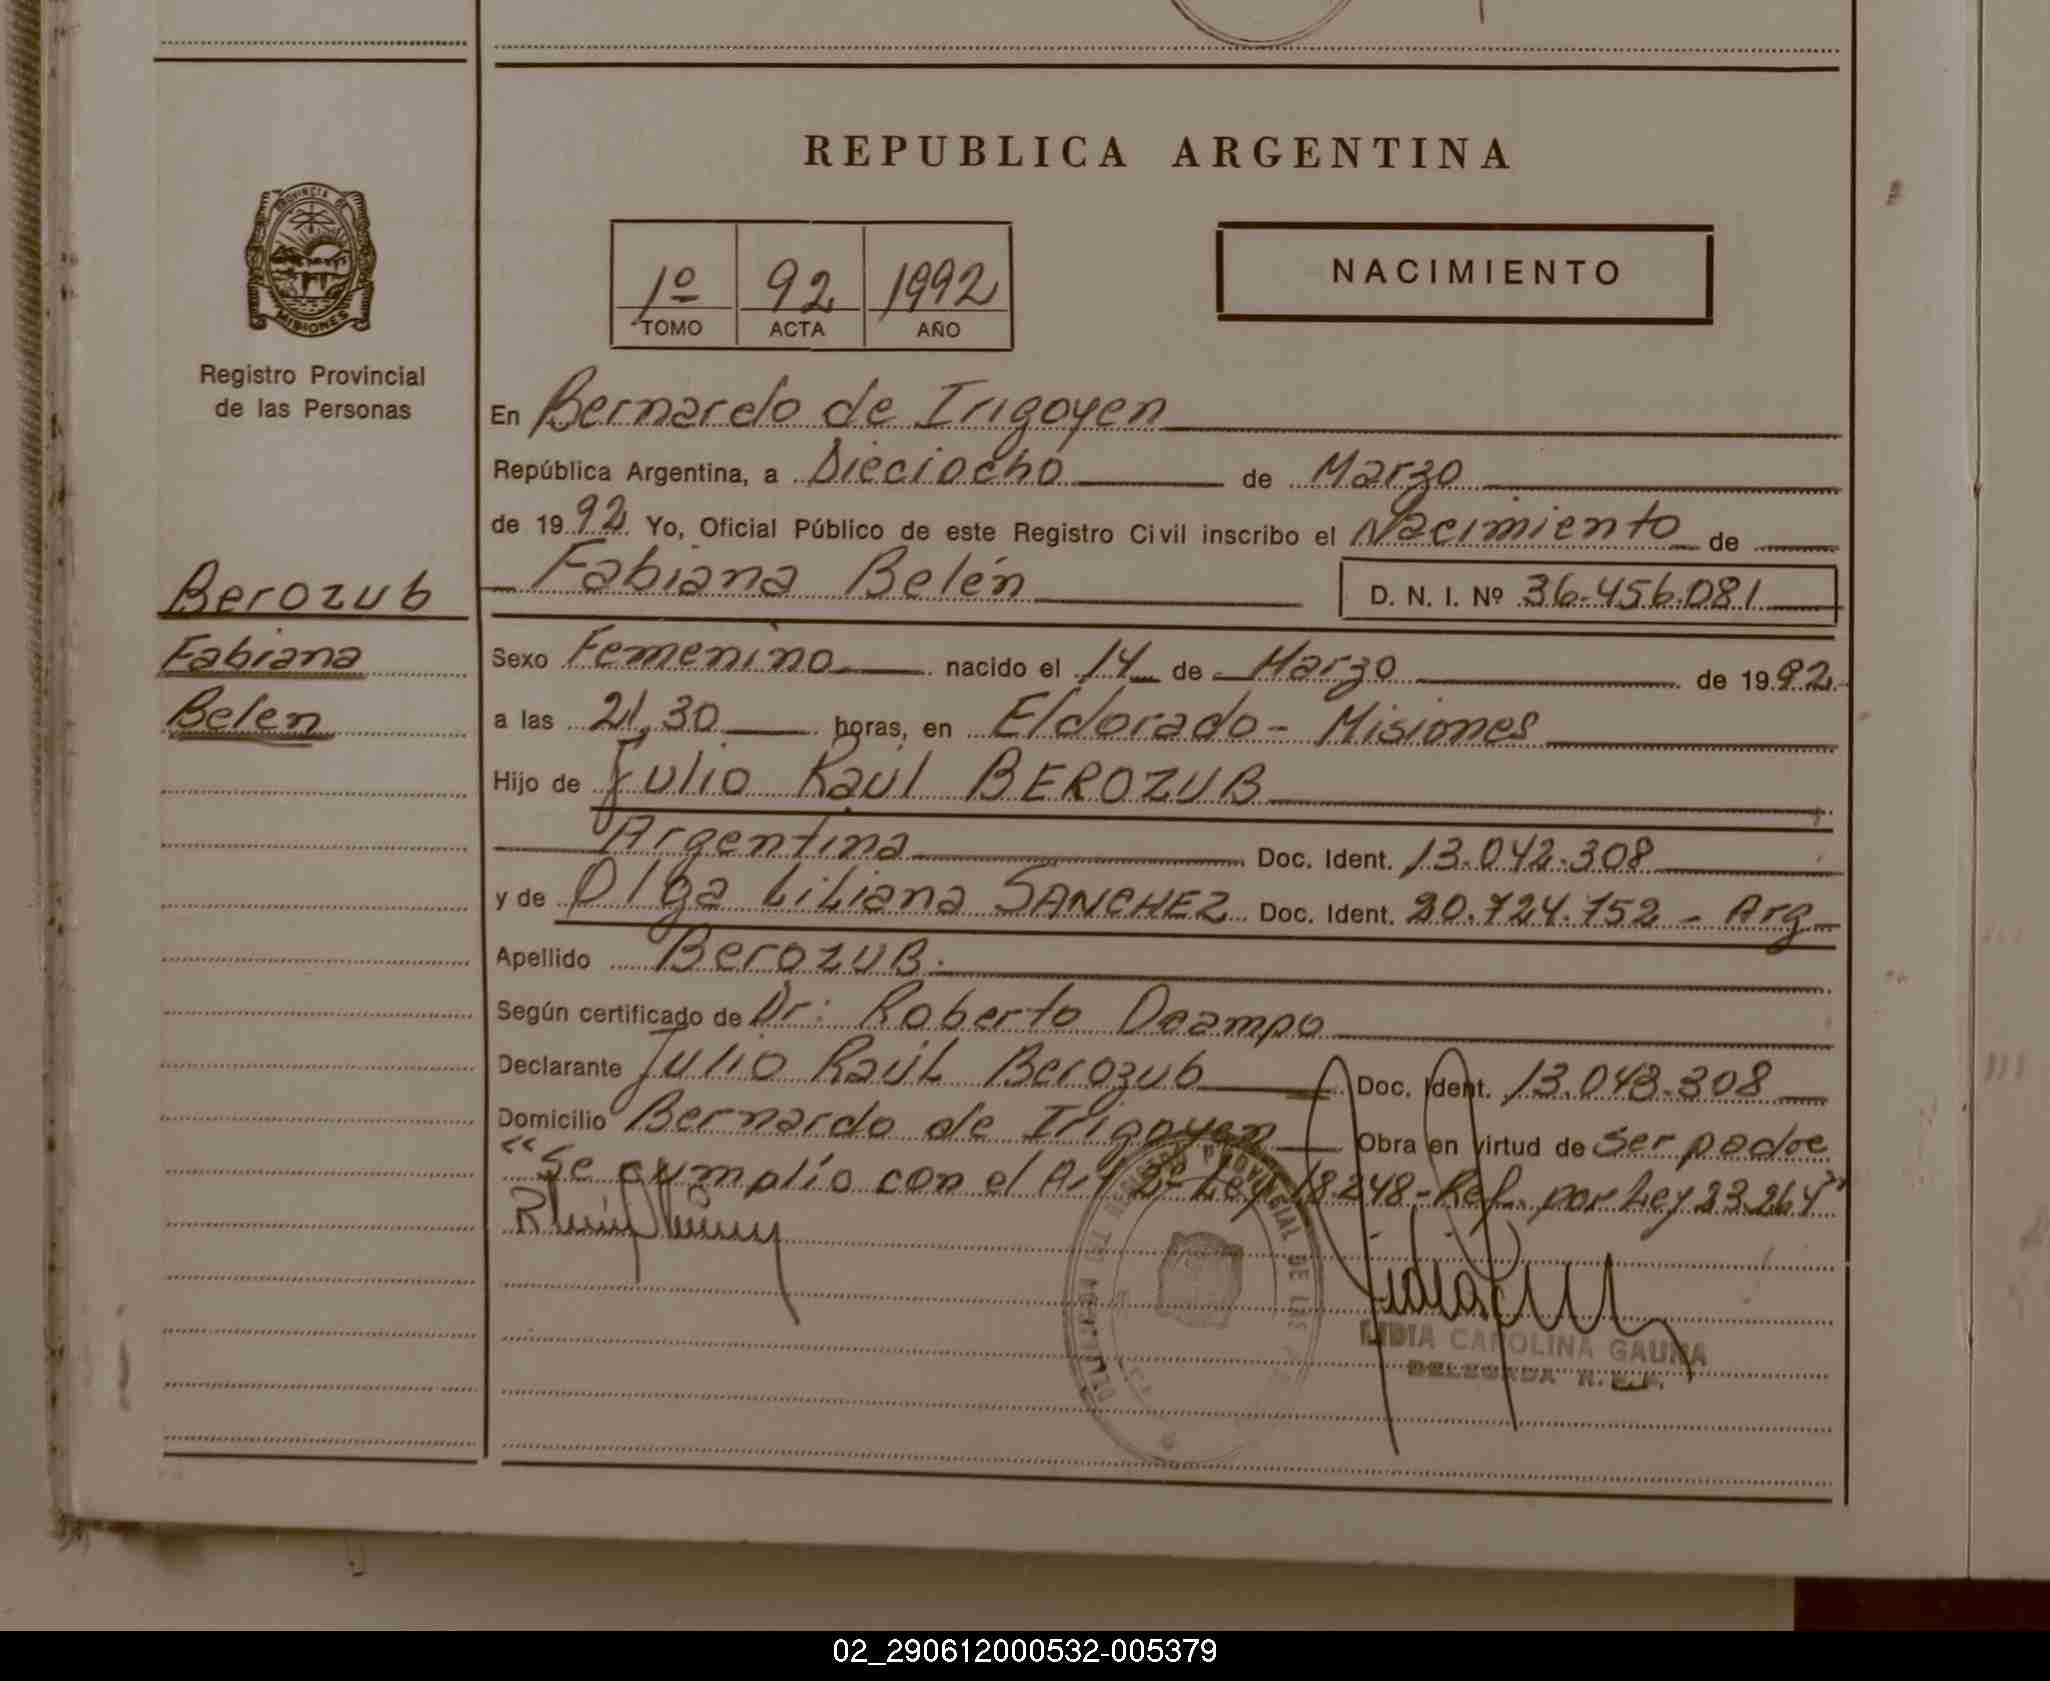 REPUBLICA ARGENTINA
PROVINCIA DE
MISIONES
Registro Provincial
de las Personas
1º 92 1992
TOMO ACTA AÑO
NACIMIENTO
En Bernardo de Irigoyen
República Argentina, a Dieciocho de Marzo
de 1992 Yo, Oficial Público de este Registro Civil inscribo el Nacimiento de
Fabiana Belén D. N. I. Nº 36.456.081
Berozub
Fabiana
Belen
Sexo Femenino nacido el 14 de Marzo de 1992
a las 21,30 horas, en Eldorado - Misiones
Hijo de Julio Raúl BEROZUB
Argentina Doc. Ident. 13.042.308
y de Olga Liliana SANCHEZ Doc. Ident. 20.724.752 - Arg
Apellido BerozuB.
Según certificado de Dr: Roberto Ocampo
Declarante Julio Raúl Berozub Doc. Ident. 13.043.308
Domicilio Bernardo de Irigoyen Obra en virtud de ser padre
"Se cumplío con el Art 2º Ley 18.248 - Ref. por Ley 23.264"
LIDIA CAROLINA GAUNA
DELEGADA R.
02_290612000532-005379